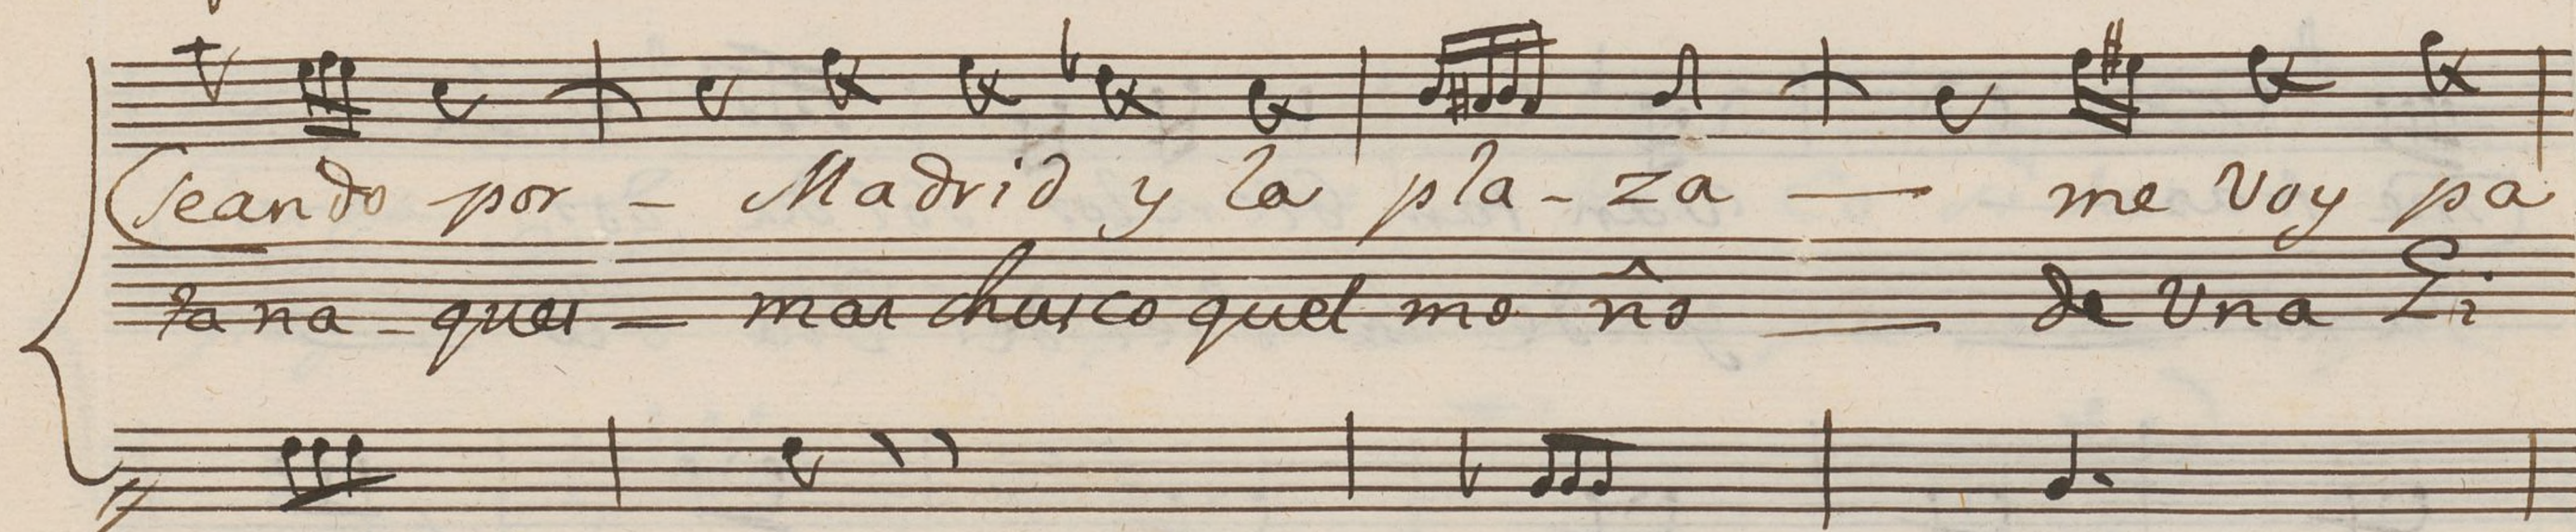 seando por - Madrid y la pla - za —
me voy pa
tana - ques — mas chusco quel mo ño — de Una Zi